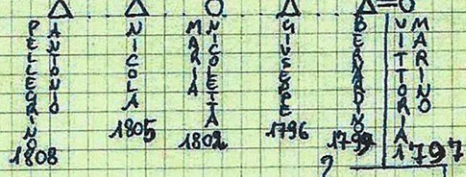 PELLEGRINO
ANTONIO
1808
NICOLA
1805
MARIA
NICOLETTA
1802
GIUSEPPE
1796
BERARDINO
1799
VITTORIA
MARINO
1797
?